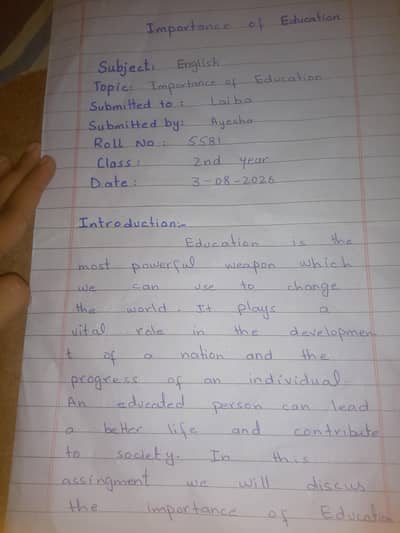 Importance of Education
Subject: English
Topic: Importance of Education
Submitted to: Laiba
Submitted by: Ayesha
Roll No: 5581
Class: 2nd year
Date: 3-08-2026
Introduction:-
Education is the
most powerful weapon which
we can use to change
the world. It plays a
vital role in the developmen
t of a nation and the
progress of an individual.
An educated person can lead
a better life and contribute
to society. In this
assingment we will discus
the importance of Education